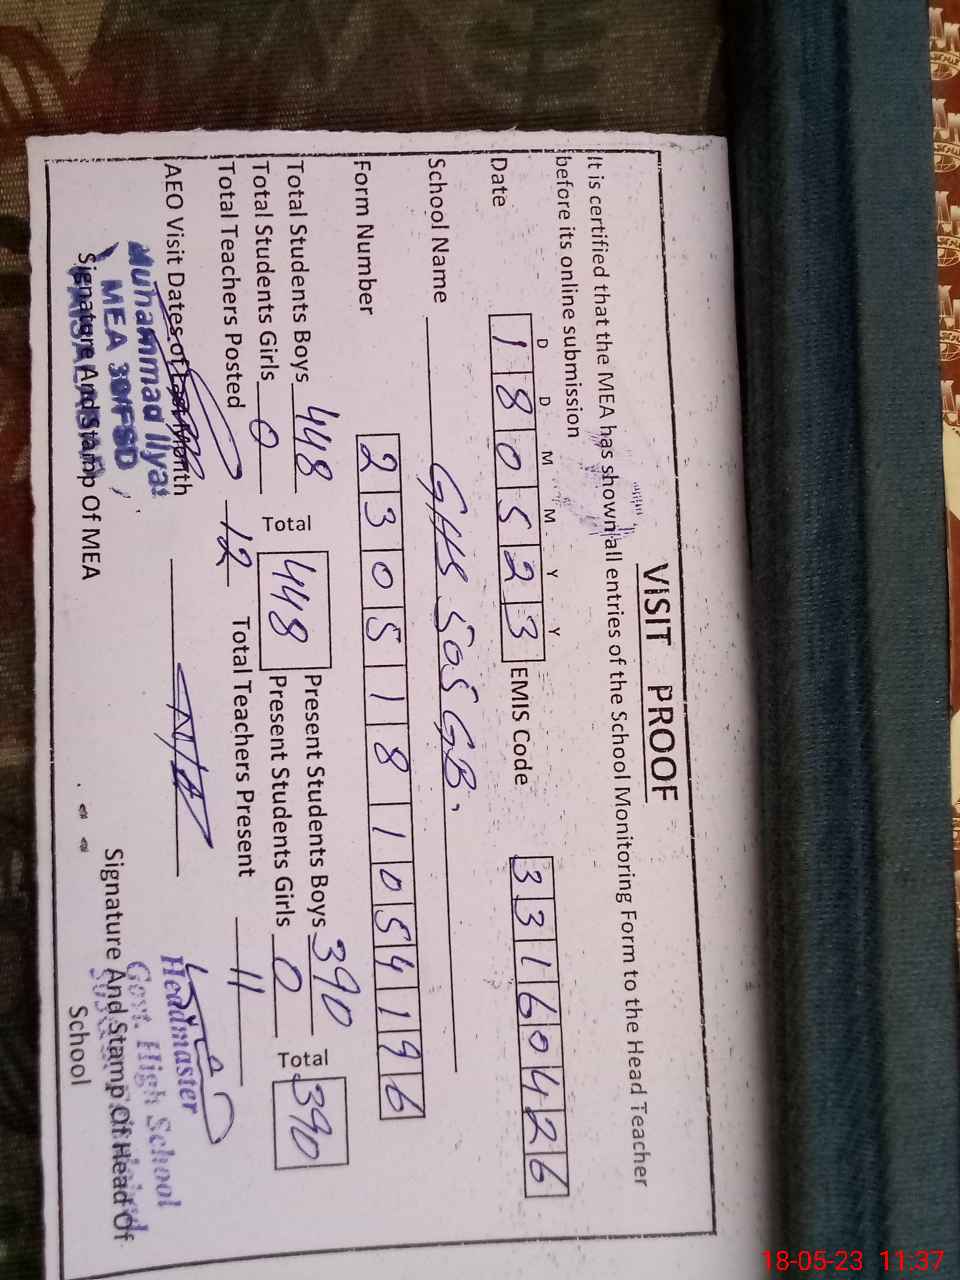 VISIT PROOF
It is certified that the MEA has shown all entries of the School Monitoring Form to the Head Teacher
before its online submission
D D M M Y Y
Date 180523 EMIS Code 33160426
School Name GHS 505 GB.
Form Number 2305181054196
Total Students Boys 448 Total 448 Present Students Boys 390 Total 390
Total Students Girls 0 Present Students Girls 0
Total Teachers Posted 12 Total Teachers Present 11
AEO Visit Dates of Last Month N/A
Muhammad Ilyas
MEA 39/FSD
Signature And Stamp Of MEA
Headmaster
Govt. High School
Signature And Stamp Of Head Of
School
18-05-23 11:37